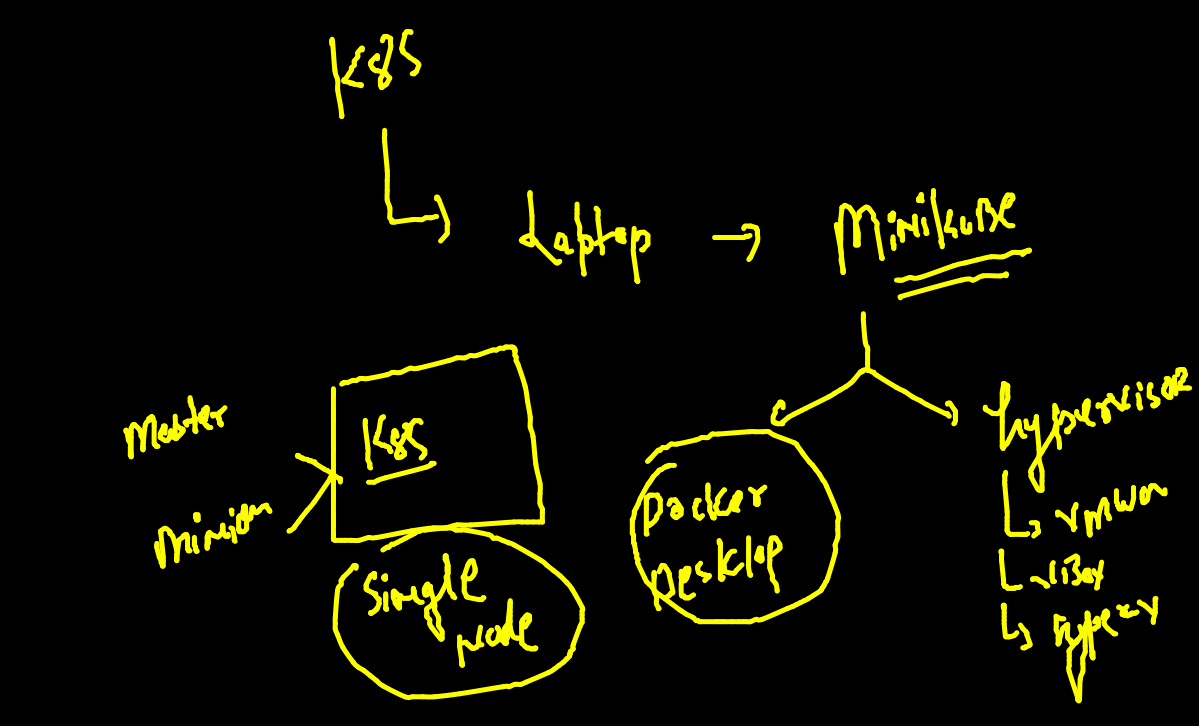 K8S
Laptop
MiniKuBe
Master
K8S
Minion
Single
Node
Docker
Desktop
hypervisor
vmwar
vBox
hyper-v